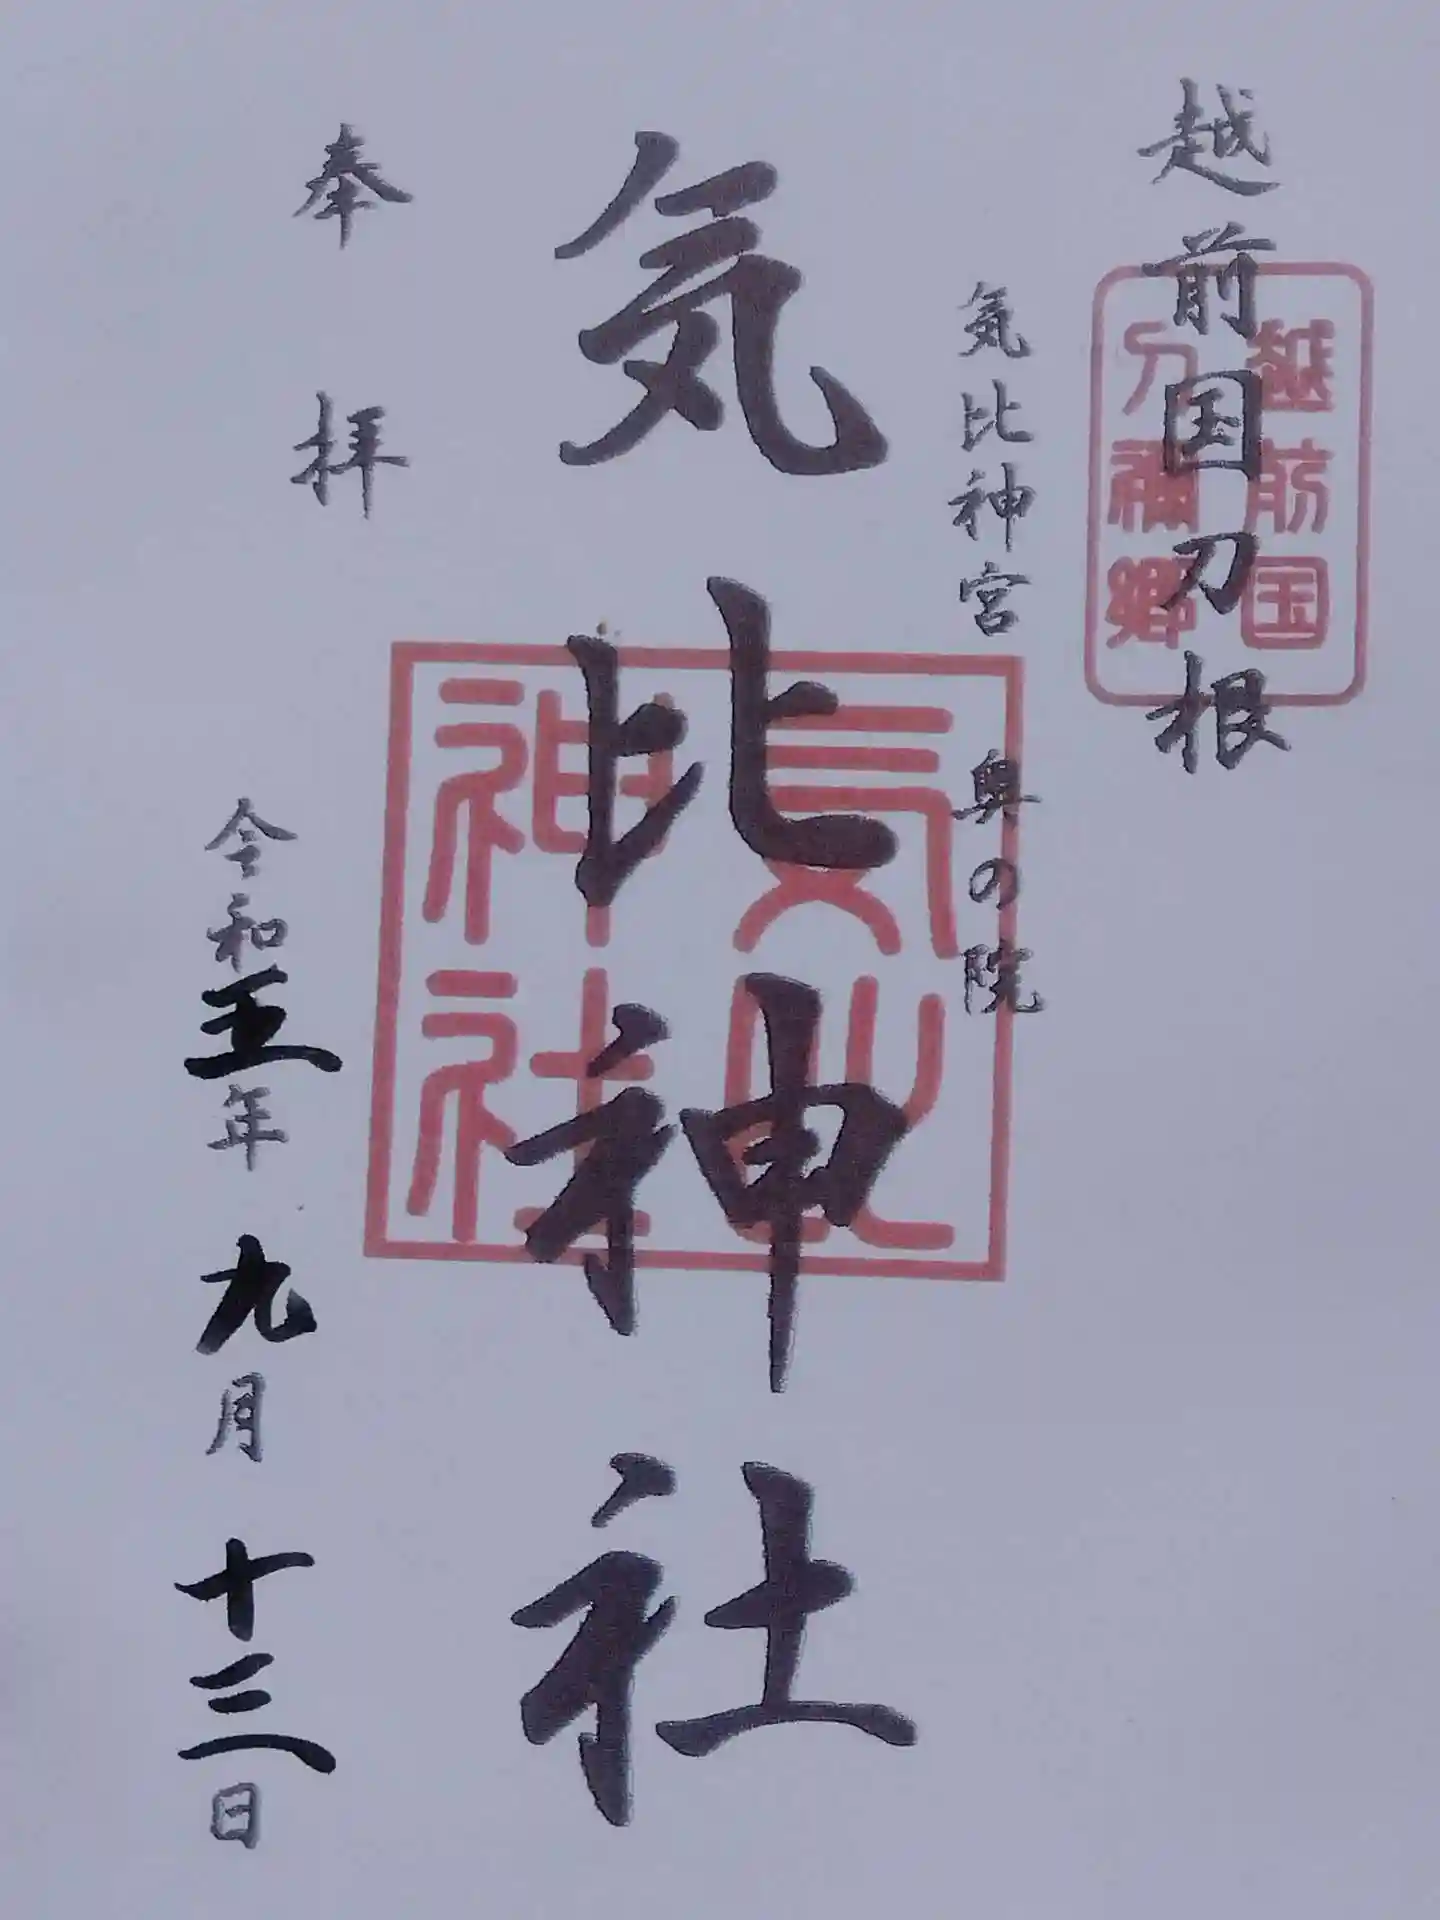 越前国刀根
越前国
刀禰郷
気比神宮 奥の院
気比神社
気比
神社
奉拝
令和五年九月十三日